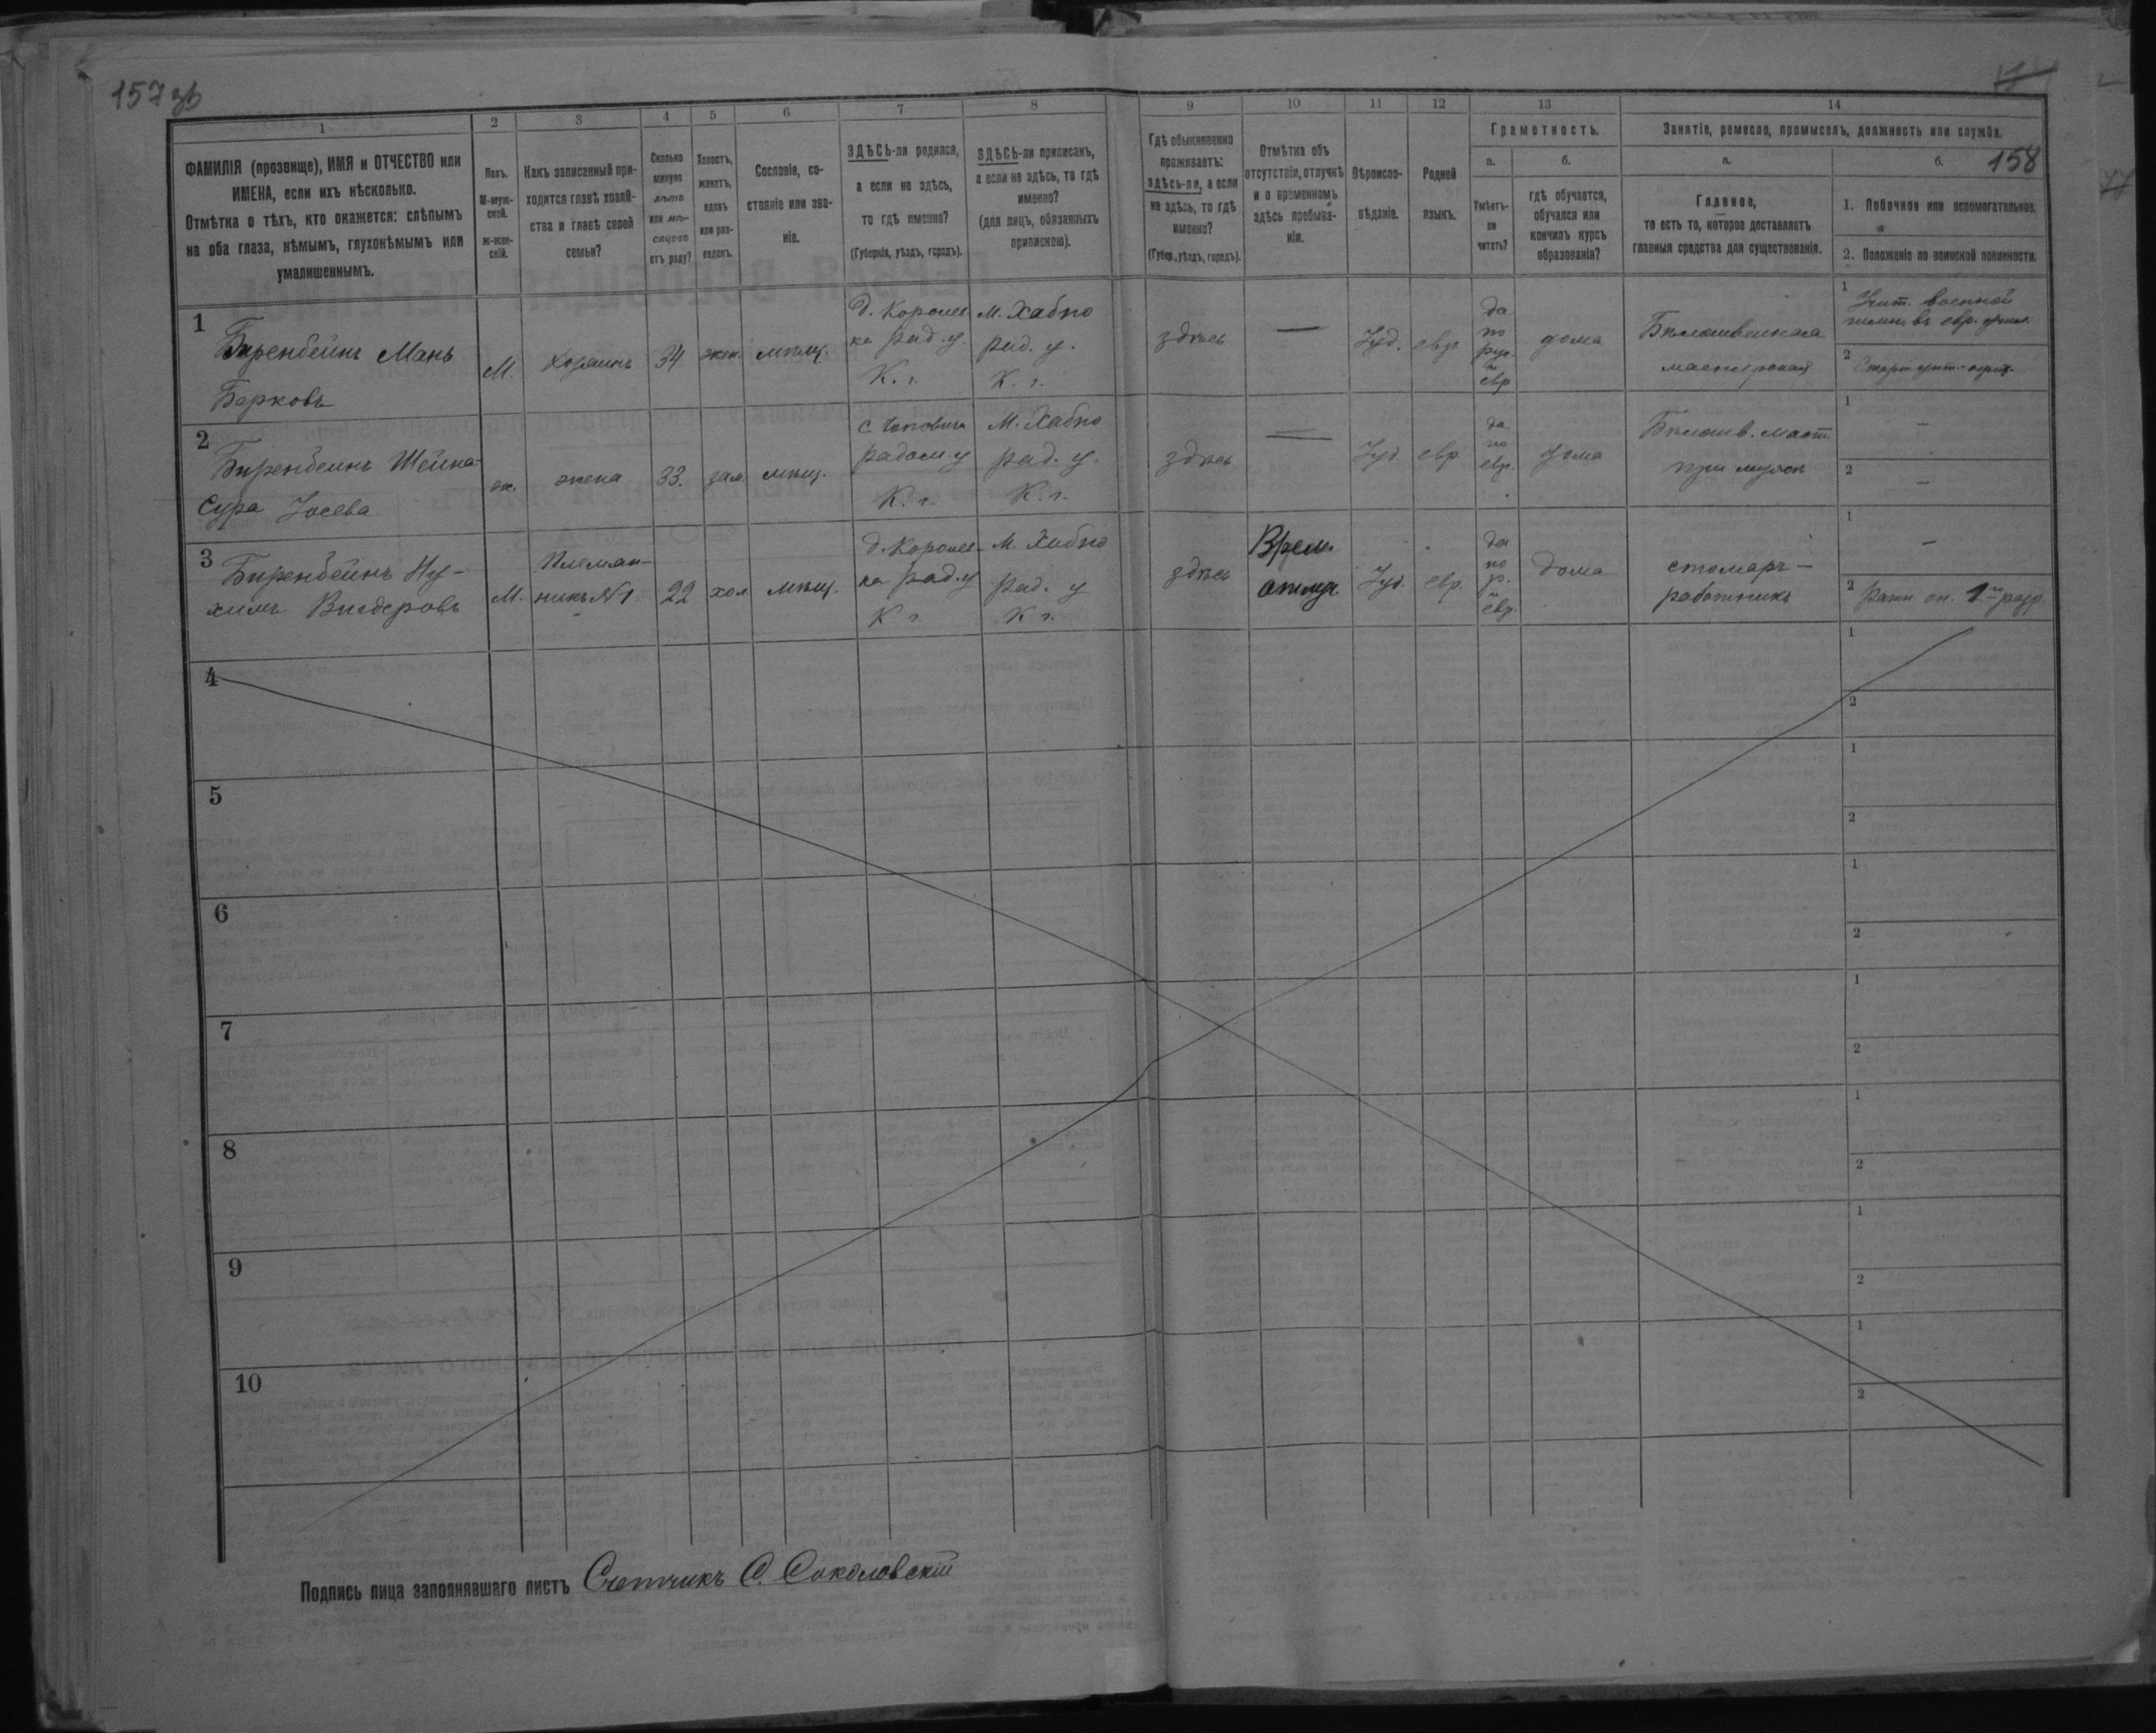 157 зб
158
1
2
3
4
5
6
7
8
9
10
11
12
13
14
ФАМИЛІЯ (прозвище), ИМЯ и ОТЧЕСТВО или
ИМЕНА, если ихъ нѣсколько.
Отмѣтка о тѣхъ, кто окажется: слѣпымъ
на оба глаза, нѣмымъ, глухонѣмымъ или
умалишеннымъ.
Полъ.
М-муж-
ской.
ж-жен-
скій.
Какъ записанный при-
ходится главѣ хозяй-
ства и главѣ своей
семьи?
Сколько
минуло
лѣтъ
или мѣ-
сяцевъ
отъ роду?
Холостъ,
женатъ,
вдовъ
или раз-
веденъ.
Сословіе, со-
стояніе или зва-
ніе.
ЗДѢСЬ-ли родился,
а если не здѣсь,
то гдѣ именно?
(Губернія, уѣздъ, городъ).
ЗДѢСЬ-ли приписанъ,
а если не здѣсь, то гдѣ
именно?
(для лицъ, обязанныхъ
припискою).
Гдѣ обыкновенно
проживаетъ:
здѣсь-ли, а если
не здѣсь, то гдѣ
именно?
(Губер., уѣздъ, городъ).
Отмѣтка объ
отсутствіи, отлучкѣ
и о временномъ
здѣсь пребыва-
ніи.
Вѣроиспо-
вѣданіе.
Родной
языкъ.
Грамотность.
а.
Умѣетъ-
ли
читать?
б.
гдѣ обучается,
обучался или
кончилъ курсъ
образованія?
Занятіе, ремесло, промыселъ, должность или служба.
а.
Главное,
то есть то, которое доставляетъ
главныя средства для существованія.
б.
1. Побочное или вспомогательное.
2. Положеніе по воинской повинности.
1
Биренбеинъ Мань
Берковъ
М.
Хозяинъ
34
жен.
мѣщ.
д. Королев-
ка рад. у.
К. г.
М. Хабно
рад. у.
К. г.
здѣсь
—
Іуд.
евр.
да
по
рус.
и
евр
дома
Бѣлошвейная
мастерская
1
военной
2
2
Биренбеинъ Шейна-
Сура Іосева
ж.
жена
33.
зам.
мѣщ.
с. Чоповичи
радом. у
К. г.
М. Хабно
рад. у.
К. г.
здѣсь
—
Іуд
евр
да
по
евр.
дома
Бѣлошв. маст.
при мужѣ
1 —
2 —
3
Биренбеинъ Ну-
химъ
М.
Племян-
никъ №1
22
хол
мѣщ.
д. Королев-
ка рад. у
К г.
М. Хабно
рад. у
К г.
здѣсь
Врем.
отлуч.
Іуд.
евр.
да
по
р.
и
евр.
дома
столяръ —
работникъ
1 —
2 Ратн. оп. 1го разр.
4
1
2
5
1
2
6
1
2
7
1
2
8
1
2
9
1
2
10
1
2
Подпись лица заполнявшаго листъ Счетчикъ С. Соколовскій